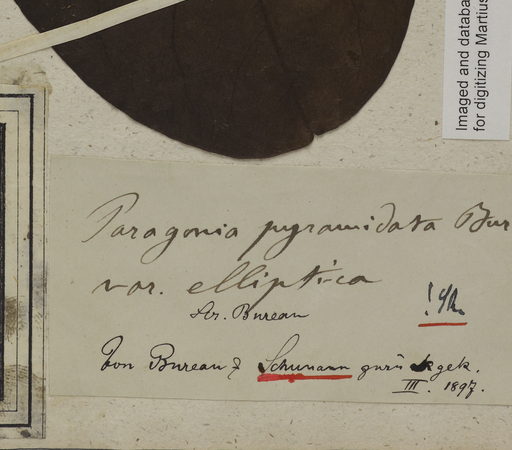 Imaged and databa
for digitizing Martius
Paragonia pyramidata Bur
var. elliptica
Bureau
Von Bureau & Schumann zurückgek.
III. 1897.